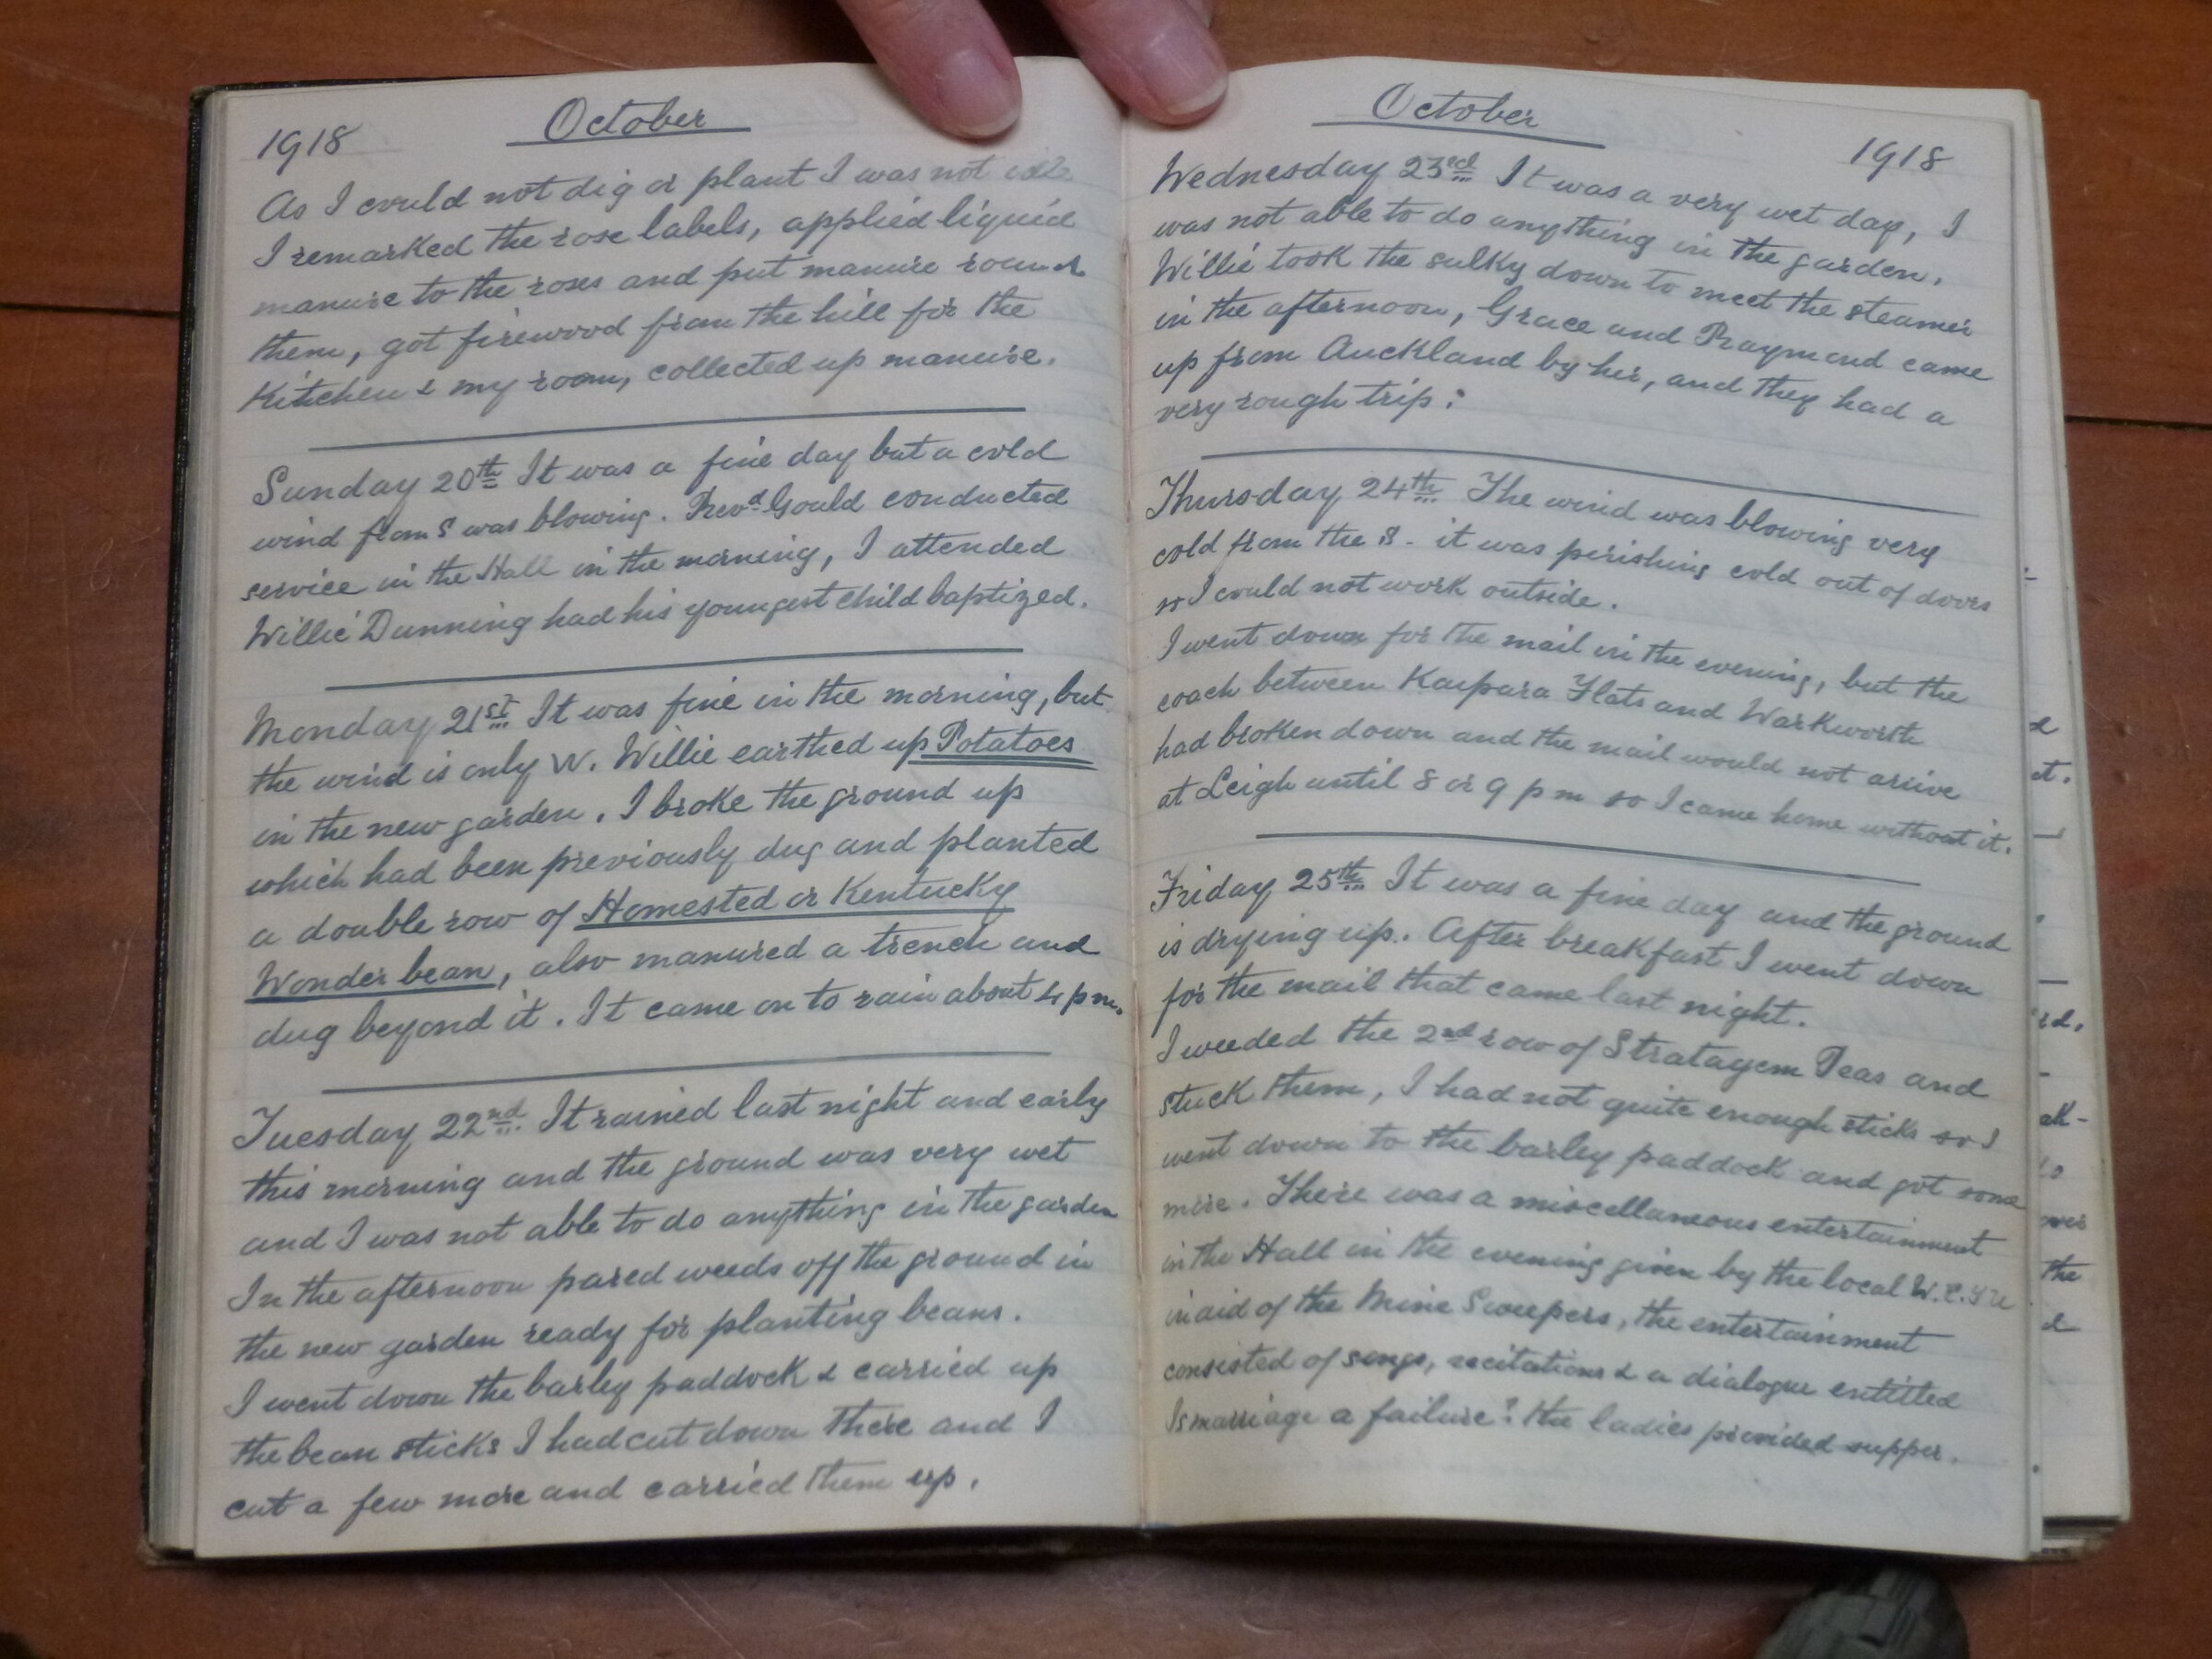 October
1918
As I could not dig or plant I was not idle
I remarked the rose labels, applied liquid
manure to the roses and put manure round
them, got firewood from the hill for the
Kitchen & my room, collected up manure.
Sunday 20th It was a fine day but a cold
wind from S was blowing. Revd Gould conducted
service in the Hall in the morning, I attended
Willie Dunning had his youngest child baptized.
Monday 21st It was fine in the morning, but
the wind is only W. Willie earthed up Potatoes
in the new garden. I broke the ground up
which had been previously dug and planted
a double row of Homested or Kentucky
Wonder bean, also manured a trench and
dug beyond it. It came on to rain about 4 pm.
Tuesday 22nd It rained last night and early
this morning and the ground was very wet
and I was not able to do anything in the garden
In the afternoon pared weeds off the ground in
the new garden ready for planting beans.
I went down the barley paddock & carried up
the bean sticks I had cut down there and I
cut a few more and carried them up.
October
1918
Wednesday 23rd It was a very wet day, I
was not able to do anything in the garden.
Willie took the sulky down to meet the steamer
in the afternoon, Grace and Raymond came
up from Auckland by her, and they had a
very rough trip:
Thursday 24th The wind was blowing very
cold from the S - it was perishing cold out of doors
so I could not work outside.
I went down for the mail in the evening, but the
coach between Kaipara Flats and Warkworth
had broken down and the mail would not arrive
at Leigh until 8 or 9 p m so I came home without it.
Friday 25th It was a fine day and the ground
is drying up. After breakfast I went down
for the mail that came last night.
I weeded the 2nd row of Stratagem Peas and
stuck them, I had not quite enough sticks so I
went down to the barley paddock and got some
more. There was a miscellaneous entertainment
in the Hall in the evening given by the local
in aid of the Mine Sweepers, the entertainment
consisted of songs, recitations & a dialogue entitled
Is marriage a failure? the ladies provided supper.